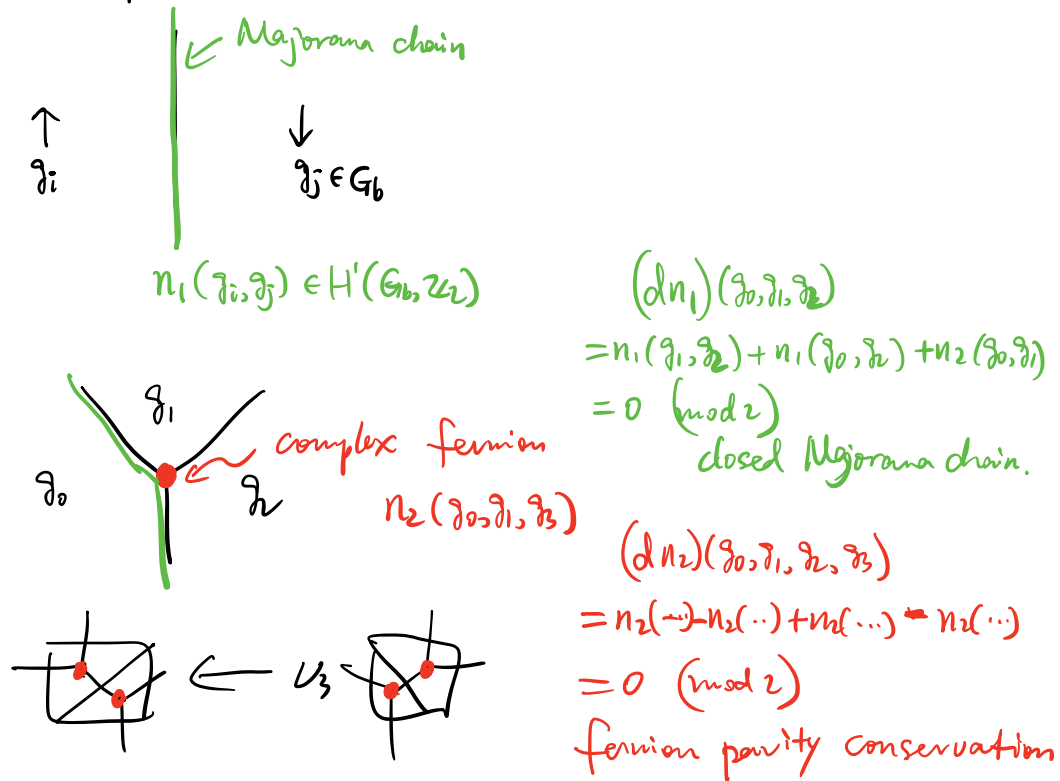 Majorana chain
gᵢ
gⱼ ∈ G_b
n₁(gᵢ,gⱼ) ∈ H¹(G_b, ℤ₂)
(dn₁)(g₀,g₁,g₂)
= n₁(g₁,g₂) + n₁(g₀,g₂) + n₂(g₀,g₁)
= 0 (mod 2)
closed Majorana chain.
g₁
g₀
g₂
complex fermion
n₂(g₀,g₁,g₃)
(dn₂)(g₀,g₁,g₂,g₃)
= n₂(...) - n₂(..) + n₂(...) - n₂(...)
= 0 (mod 2)
fermion parity conservation
ν₃